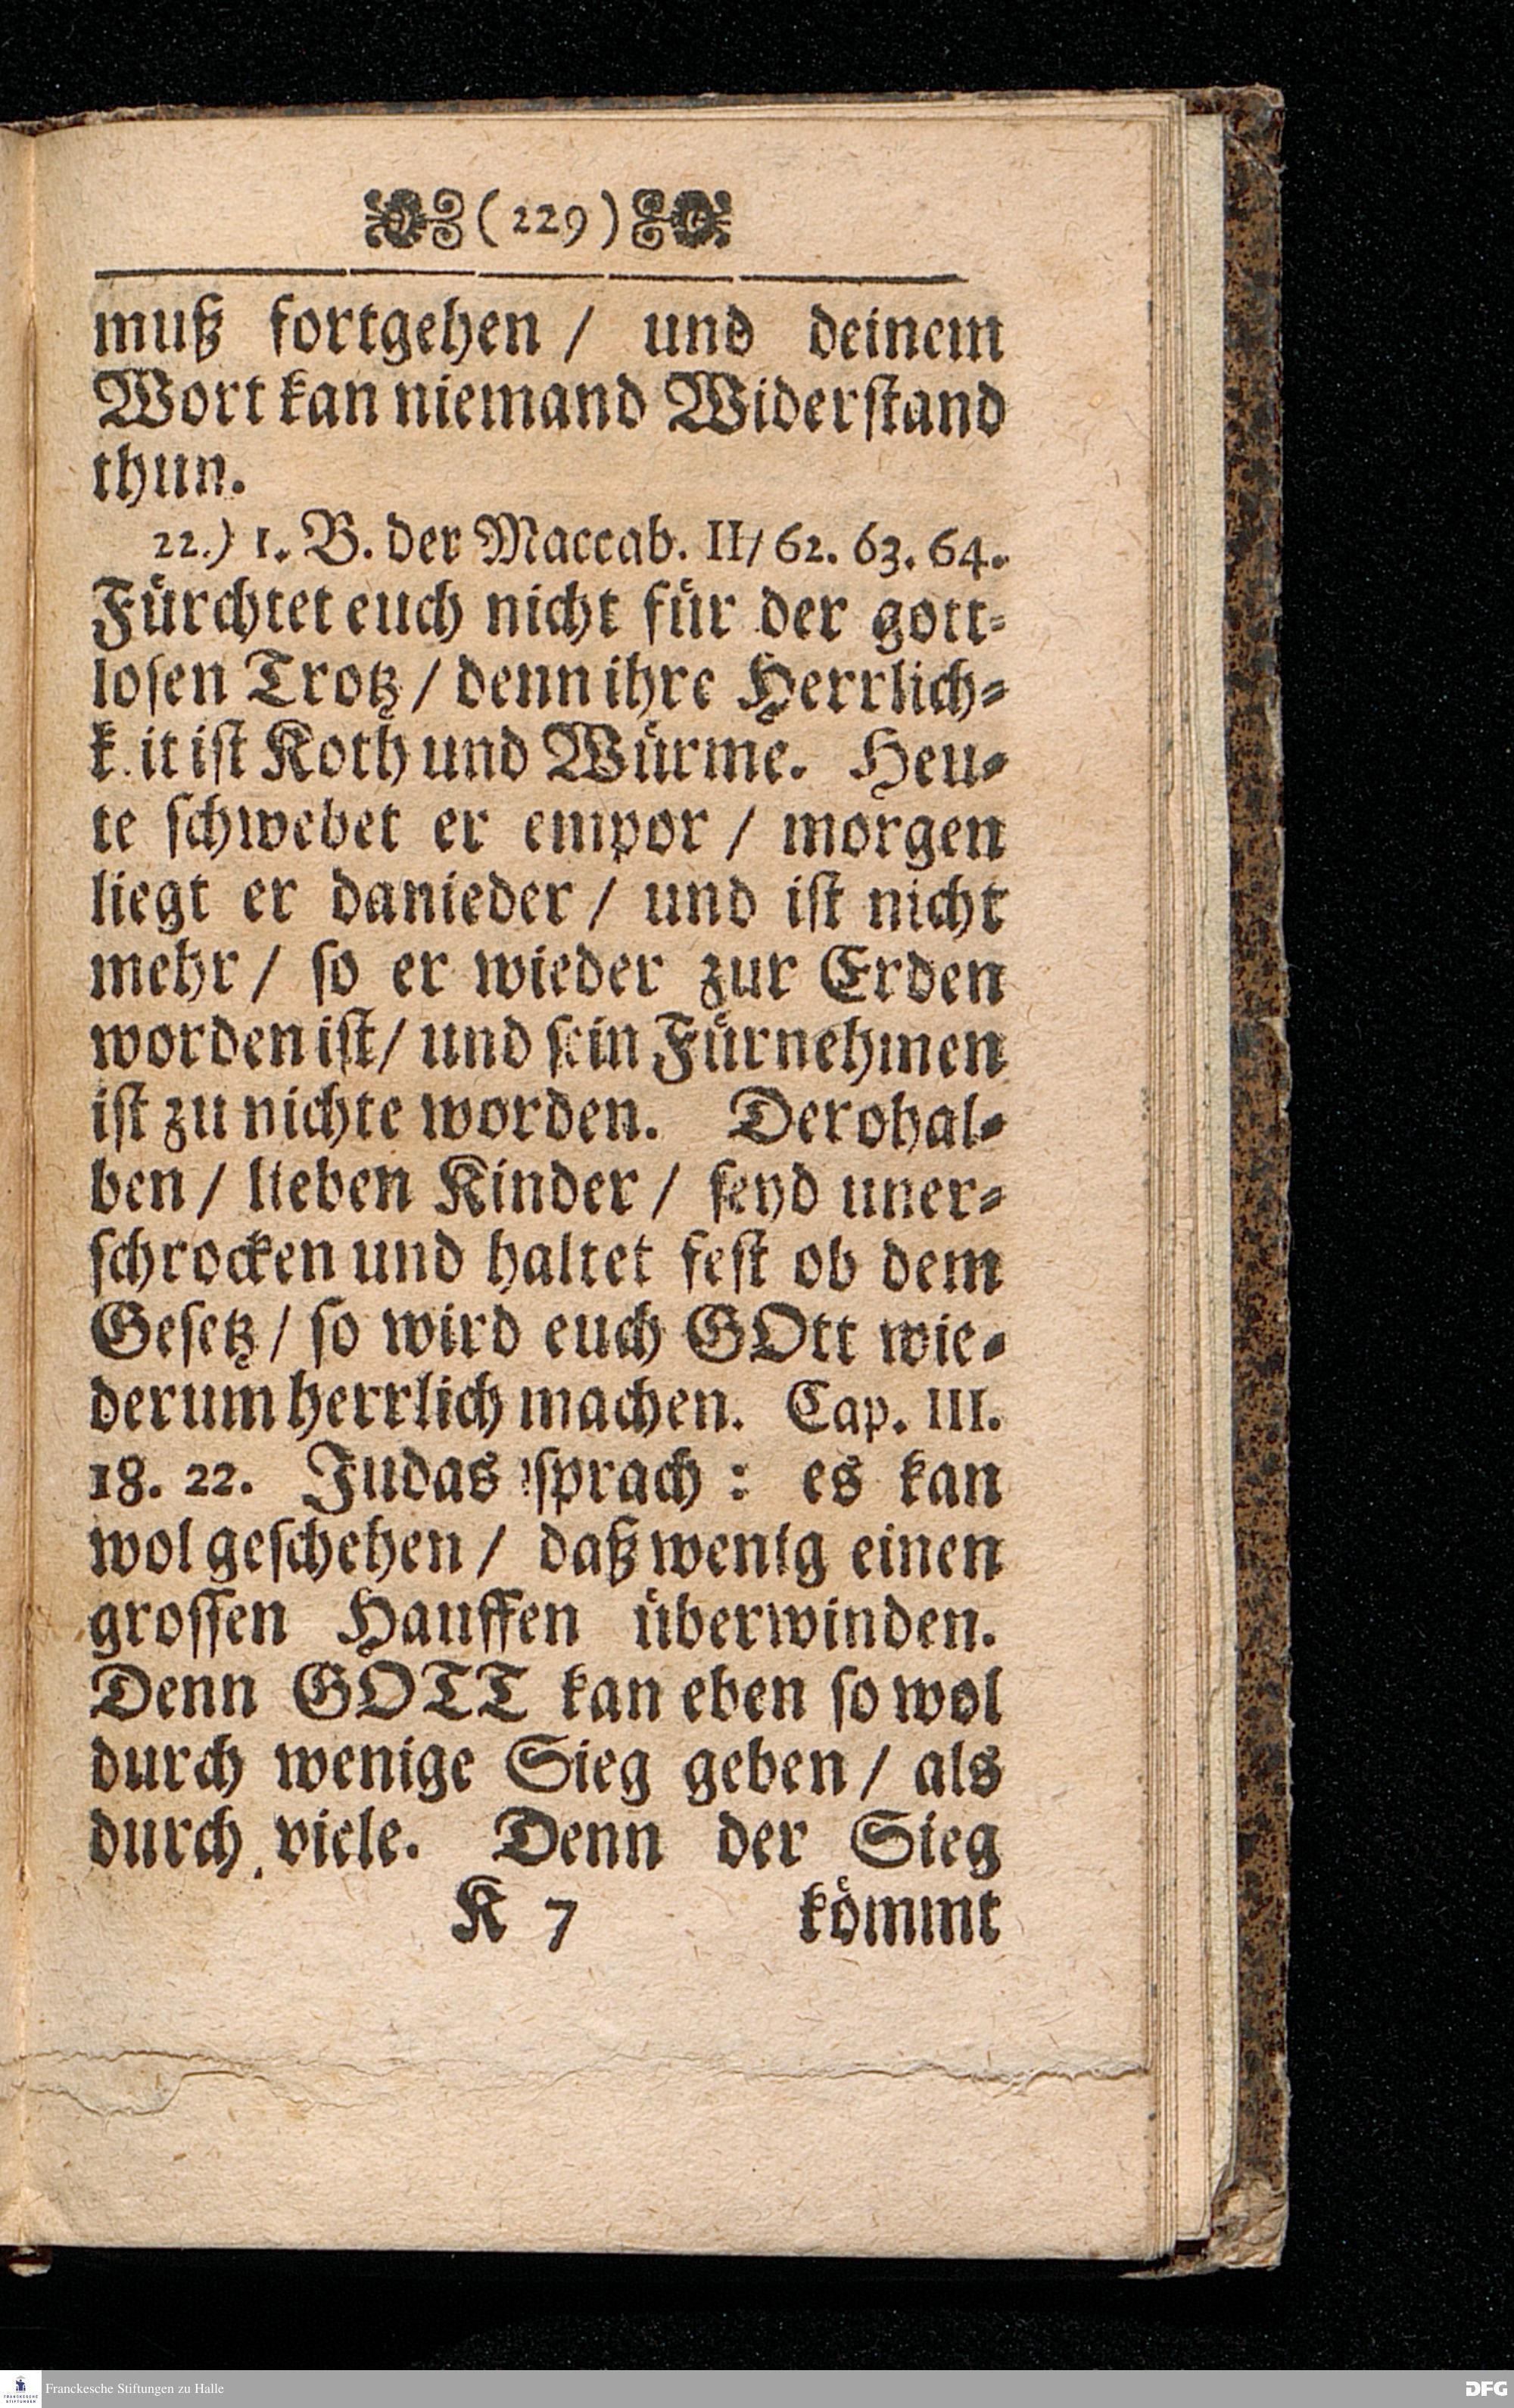 (229)
muß fortgehen / und deinem
Wort kan niemand Widerstand
thun.
22.) 1. B. der Maccab. II/ 62. 63. 64.
Fürchtet euch nicht für der gott-
losen Trotz / denn ihre Herrlich-
k it ist Koth und Würme. Heu-
te schwebet er empor / morgen
liegt er danieder / und ist nicht
mehr / so er wieder zur Erden
worden ist / und sein Fürnehmen
ist zu nichte worden. Derohal-
ben / lieben Kinder / seyd uner-
schrocken und haltet fest ob dem
Gesetz / so wird euch GOtt wie-
derum herrlich machen. Cap. III.
18. 22. Judas sprach : es kan
wol geschehen / daß wenig einen
grossen Hauffen überwinden.
Denn GOTT kan eben so wol
durch wenige Sieg geben / als
durch viele. Denn der Sieg
K 7 kömmt
Franckesche Stiftungen zu Halle
FRANCKESCHE
STIFTUNGEN
DFG